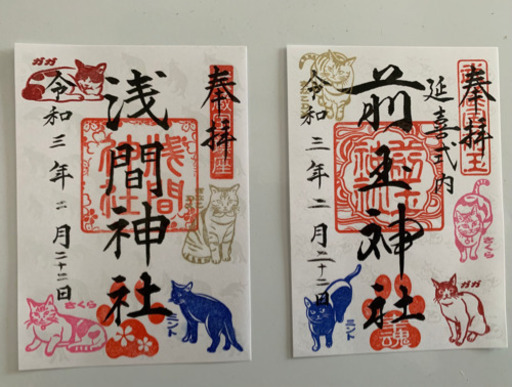 奉拝
浅間神社
令和三年二月二十二日
ガガ
さくら
ミント
奉拝
延喜式内
前玉神社
令和三年二月二十二日
さくら
ガガ
ミント